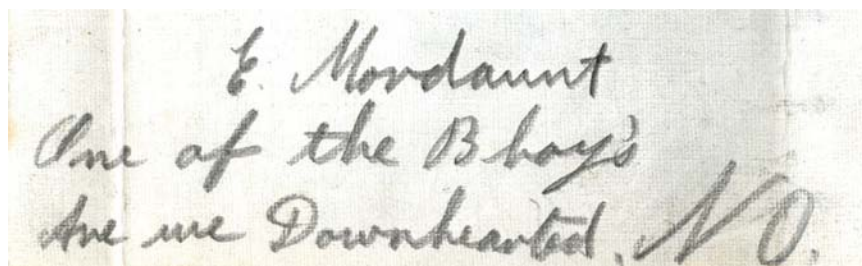 E. Mordaunt
One of the Bhoy's
Are we Downhearted. NO.